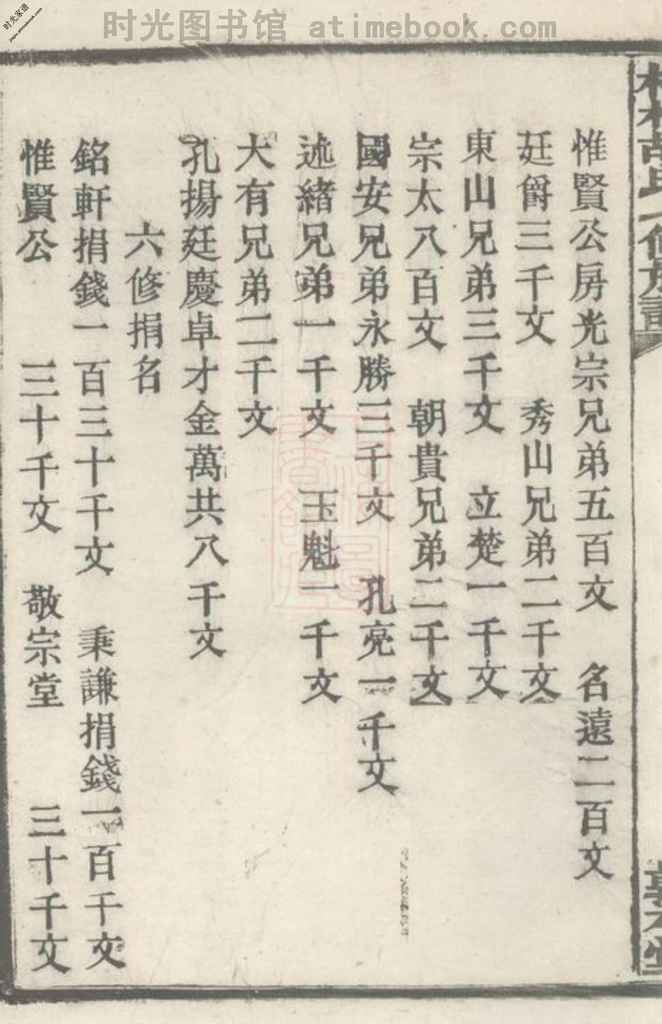 时光图书馆 atimebook.com
时光家谱
惟賢公房光宗兄弟五百文 名遠二百文
廷爵三千文 秀山兄弟二千文
東山兄弟三千文 立楚一千文
宗太八百文 朝貴兄弟二千文
國安兄弟永勝三千文 孔亮一千文
述緒兄弟一千文 玉魁一千文
大有兄弟二千文
孔揚廷慶卓才金萬共八千文
六修捐名
銘軒捐錢一百三十千文 秉謙捐錢一百千文
惟賢公 三十千文 敬宗堂 三十千文